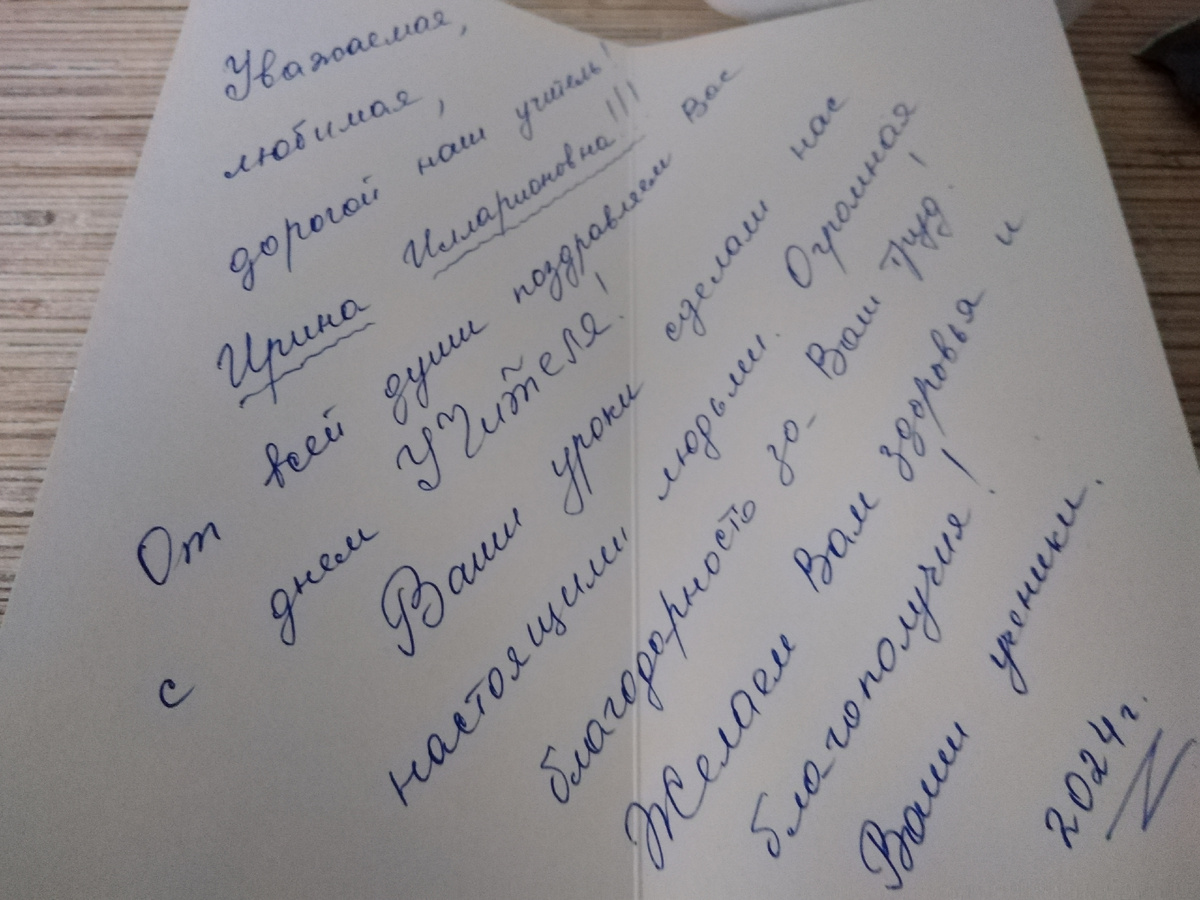 Уважаемая,
любимая,
дорогой наш учитель!
Ирина Илларионовна!!!
От всей души поздравляем Вас
с днем УЧИТЕЛЯ!
Ваши уроки сделали нас
настоящими людьми. Огромная
благодарность за Ваш труд!
Желаем Вам здоровья и
благополучия!
Ваши ученики.
2024 г.